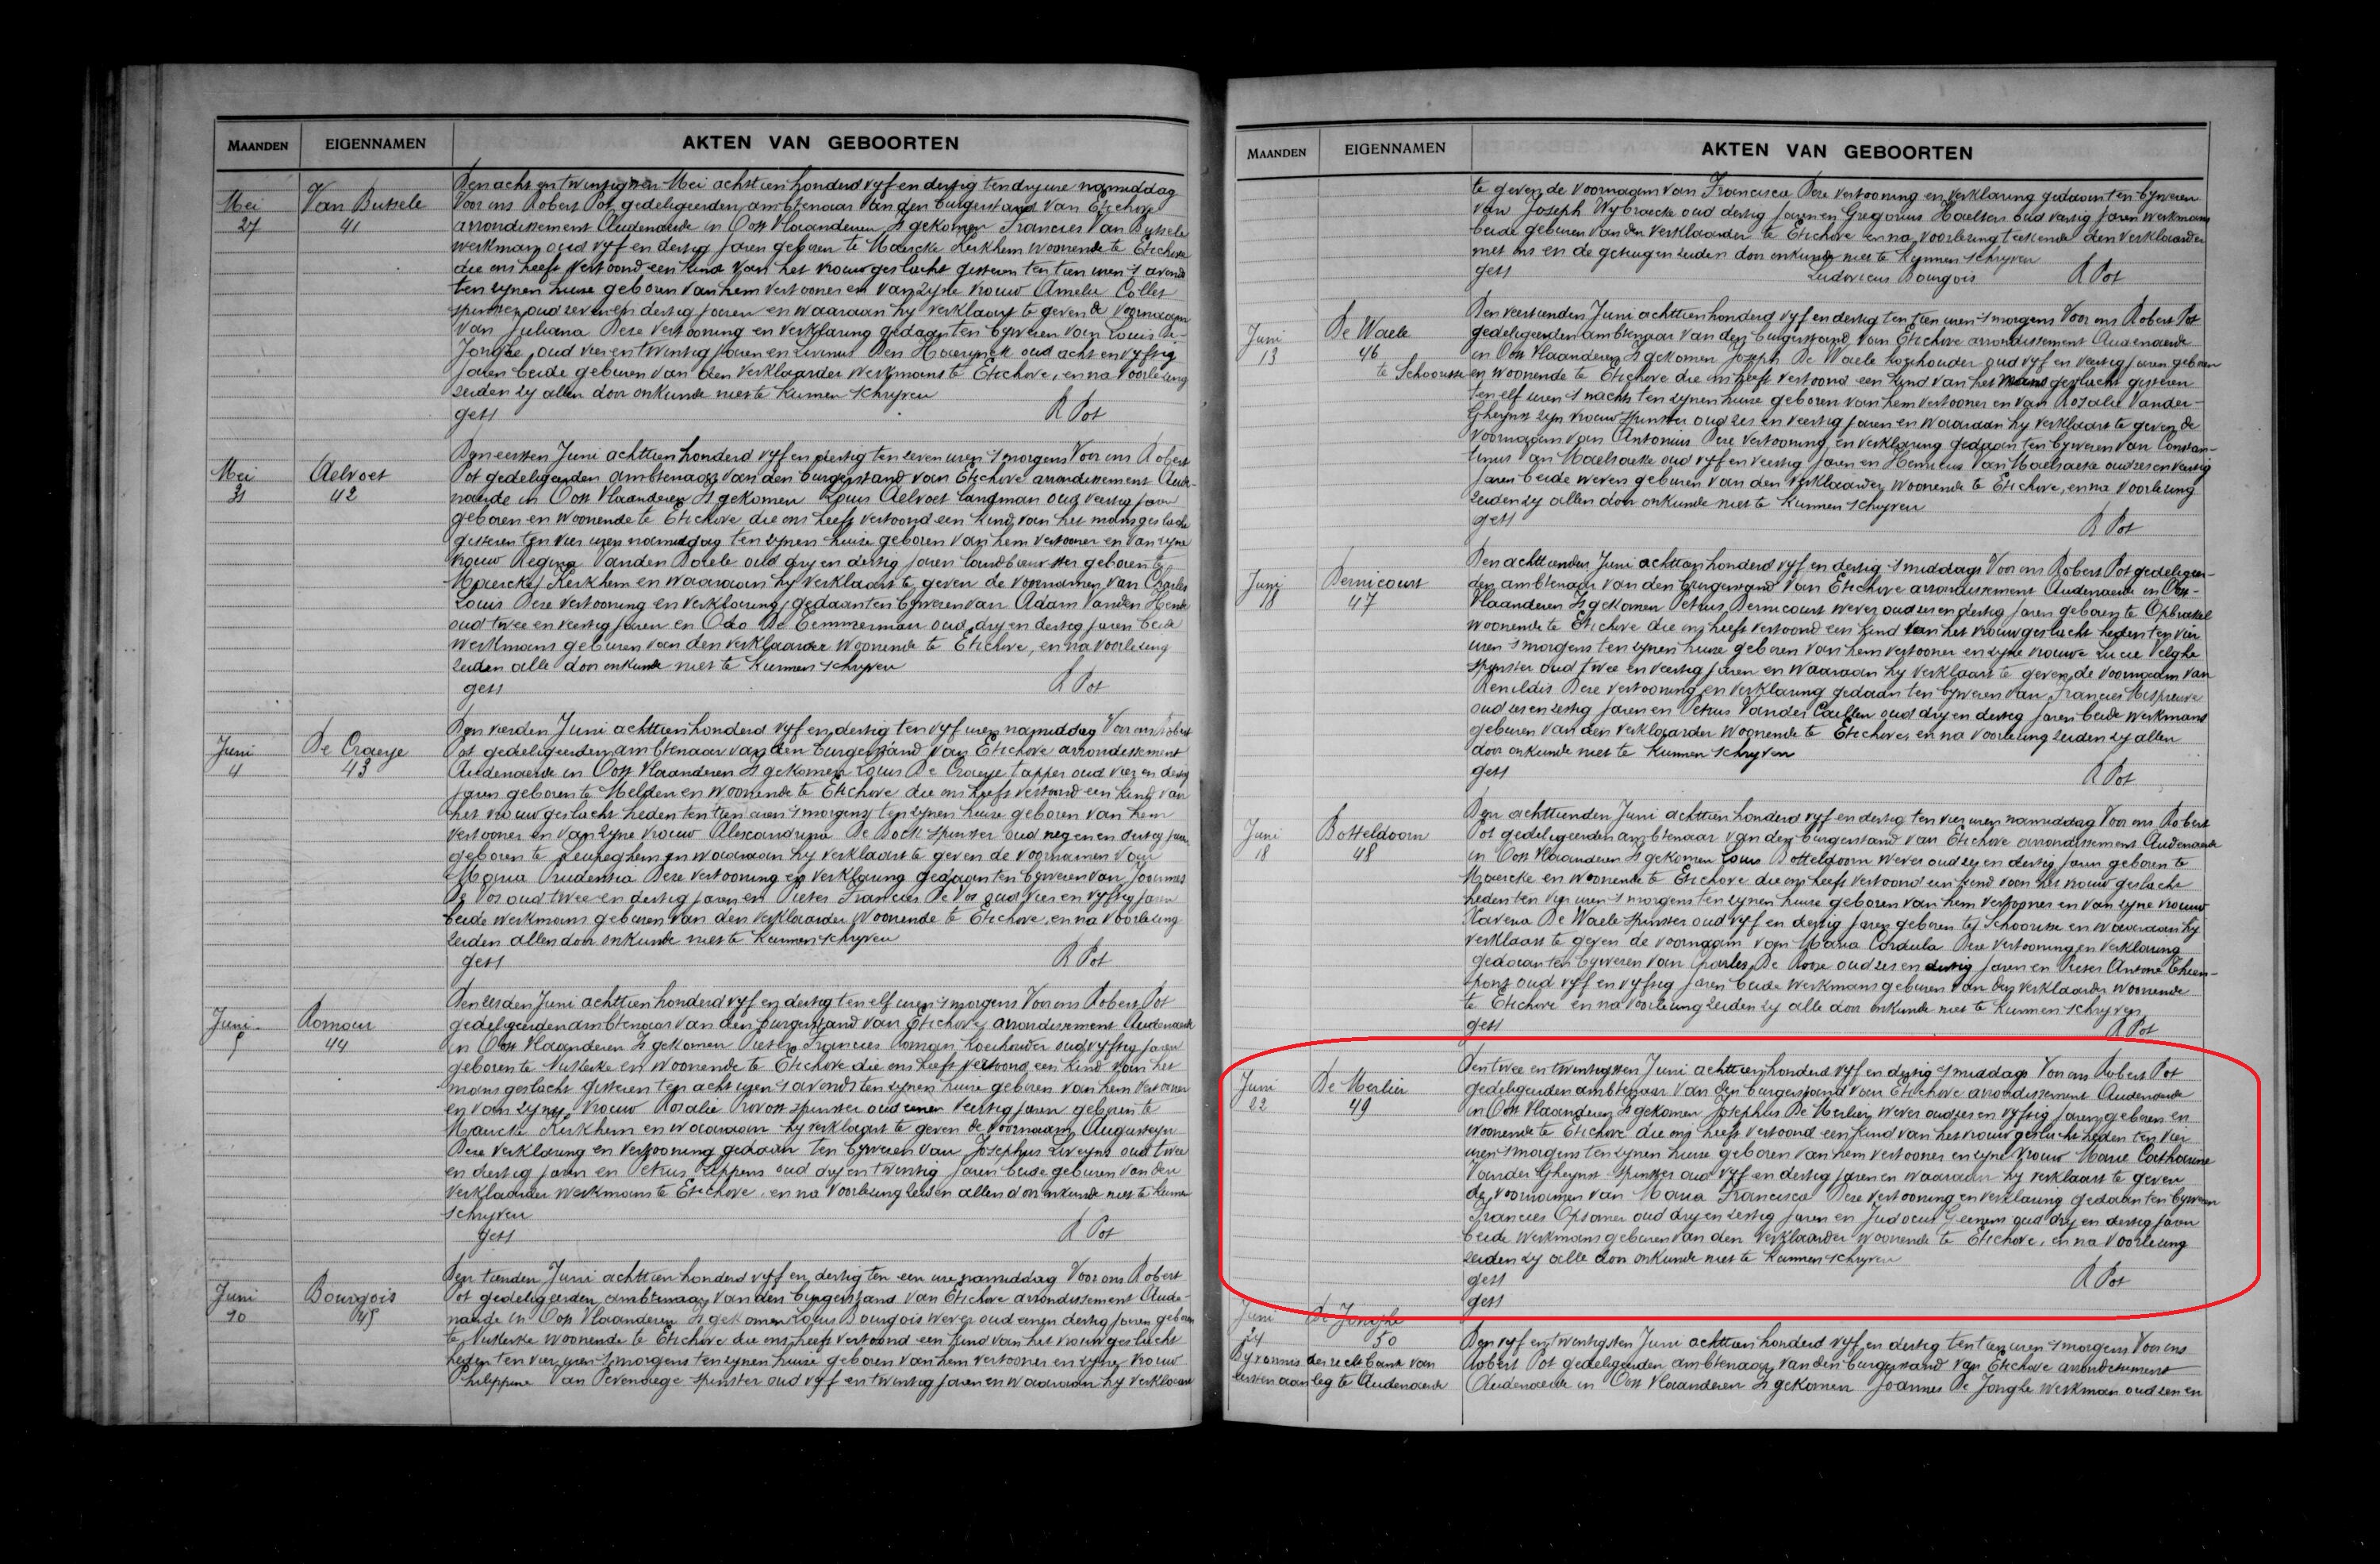 MAANDEN EIGENNAMEN AKTEN VAN GEBOORTEN
Mei
27
Van Butsele
41
Den acht en twintigsten Mei achttien honderd vyf en dertig ten dry ure namiddag
Voor ons Robert Pot gedeligeerden ambtenaar van den burgerstand van Etichove
arrondissement Audenaerde in Oost Vlaanderen Is gekomen Francies Van Butsele
werkman oud vyf en dertig jaren geboren te Maercke Kerkhem woonende te Etichove
die ons heeft vertoond een kind van het vrouwgeslacht gisteren ten tien uren s avonds
ten zynen huise geboren van hem vertooner en van zyne vrouw Amelie Collet
spinster oud zeven en dertig jaren en waaraan hy verklaart te geven de voornaam
van Juliana Deze vertooning en verklaring gedaan ten bywezen van Louis De
Jonghe oud vier en twintig jaren en Livinus Den Haerynck oud acht en vyftig
jaren beide geburen van den verklaarder werkmans te Etichove, en na voorlezing
zeiden zy allen door onkunde niet te kunnen schryven
get1 R Pot
Mei
31
Aelvoet
42
Den eersten Juni achttien honderd vyf en dertig ten zeven uren s morgens Voor ons Robert
Pot gedeligeerden ambtenaar van den burgerstand van Etichove arrondissement Aude-
naarde in Oost Vlaanderen Is gekomen Louis Aelvoet landman oud veertig jaren
geboren en woonende te Etichove die ons heeft vertoond een kind van het mansgeslacht
gisteren ten vier uren namiddag ten zynen huise geboren van hem vertooner en van zyne
vrouw Regina Vanden Daele oud dry en dertig jaren landbouwster geboren te
Maercke Kerkhem en waaraan hy verklaart te geven de voornamen van Charles
Louis Deze vertooning en verklaring gedaan ten bywezen van Adam Vanden Hende
oud twee en veertig jaren en Odo De Temmerman oud dry en dertig jaren beide
werkmans geburen van den verklaarder woonende te Etichove, en na voorlezing
zeiden alle door onkunde niet te kunnen schryven
get1 R Pot
Juni
4
De Craeye
43
Den vierden Juni achttien honderd vyf en dertig ten vyf uren namiddag Voor ons Robert
Pot gedeligeerden ambtenaar van den burgerstand van Etichove arrondissement
Audenaerde in Oost Vlaanderen Is gekomen Louis De Craeye tapper oud vier en dertig
jaren geboren te Melden en woonende te Etichove die ons heeft vertoond een kind van
het vrouwgeslacht heden ten tien uren s morgens ten zynen huise geboren van hem
vertooner en van zyne vrouw Alexandrina De Bock spinster oud negen en dertig jaren
geboren te Leupeghem en waaraan hy verklaart te geven de voornamen van
Maria Prudentia Deze vertooning en verklaring gedaan ten bywezen van Joannes
De Vos oud twee en dertig jaren en Pieter Francies De Vos oud vier en vyftig jaren
beide werkmans geburen van den verklaarder woonende te Etichove, en na voorlezing
zeiden allen door onkunde niet te kunnen schryven
get1 R Pot
Juni
5
Roman
44
Den zesden Juni achttien honderd vyf en dertig ten elf uren s morgens Voor ons Robert Pot
gedeligeerden ambtenaar van den burgerstand van Etichove arrondissement Audenaerde
in Oost Vlaanderen Is gekomen Pieter Francies Roman Koeihouder oud vyftig jaren
geboren te Nukerke en woonende te Etichove die ons heeft vertoond een kind van het
mansgeslacht gisteren ten acht uren s avonds ten zynen huise geboren van hem vertooner
en van zyne vrouw Rosalie Provost spinster oud eenen veertig jaren geboren te
Maercke Kerkhem en waaraan hy verklaart te geven de voornaam Augusteyn
Deze verklaring en vertooning gedaan ten bywezen van Josephus Liveyns oud twee
en dertig jaren en Petrus Lippens oud dry en twintig jaren beide geburen van den
verklaarder werkmans te Etichove, en na voorlezing zeiden allen door onkunde niet te kunnen
schryven
get1 R Pot
Juni
10
Bourgois
45
Den tienden Juni achttien honderd vyf en dertig ten een ure namiddag Voor ons Robert
Pot gedeligeerden ambtenaar van den burgerstand van Etichove arrondissement Aude-
naarde in Oost Vlaanderen Is gekomen Louis Bourgois wever oud eenen dertig jaren geboren
te Nukerke woonende te Etichove die ons heeft vertoond een kind van het vrouwgeslacht
heden ten vier uren s morgens ten zynen huise geboren van hem vertooner en zyne vrouw
Philippine Van Pevenaege spinster oud vyf en twintig jaren en waaraan hy verklaart
MAANDEN EIGENNAMEN AKTEN VAN GEBOORTEN
te geven de voornaam van Francisca Deze vertooning en verklaring gedaan ten bywezen
van Joseph Wybraecke oud dertig jaren en Gregorius Haelters oud veertig jaren werkmans
beide geburen van den verklaarder te Etichove en na voorlezing teekende den verklaarder
met ons en de getuigen zeiden door onkunde niet te kunnen schryven
get1 Ludovicus Bourgois R Pot
Juni
13
De Waele
46
te Schoorisse
Den veertienden Juni achttien honderd vyf en dertig ten tien uren s morgens Voor ons Robert Pot
gedeligeerden ambtenaar van den burgerstand van Etichove arrondissement Audenaerde
in Oost Vlaanderen Is gekomen Joseph De Waele koeihouder oud vyf en veertig jaren geboren
en woonende te Etichove die ons heeft vertoond een kind van het mans geslacht gisteren
ten elf uren s nachts ten zynen huise geboren van hem vertooner en van Rosalie Vander-
Gheynst zyn vrouw spinster oud zes en veertig jaren en waaraan hy verklaart te geven de
voornaam van Antonius Deze vertooning en verklaring gedaan ten bywezen van Constan-
tinus Van Maelsaeke oud vyf en veertig jaren en Henricus Van Maelsaeke oud zes en veertig
jaren beide wevers geburen van den verklaarder woonende te Etichove, en na voorlezing
zeiden zy allen door onkunde niet te kunnen schryven
get1 R Pot
Juni
18
Dernicourt
47
Den achttienden Juni achttien honderd vyf en dertig s middags Voor ons Robert Pot gedeligeer-
den ambtenaar van den burgerstand van Etichove arrondissement Audenaerde in Oost-
Vlaanderen Is gekomen Petrus Dernicourt wever oud zes en dertig jaren geboren te Opbrakel
woonende te Etichove die ons heeft vertoond een kind van het vrouwgeslacht heden ten vier
uren s morgens ten zynen huise geboren van hem vertooner en zyne vrouwe Lucie Velghe
spinster oud twee en veertig jaren en waaraan hy verklaart te geven de voornaam van
Renildis Deze vertooning en verklaring gedaan ten bywezen van Francies Mespreuve
oud zes en zestig jaren en Petrus Vander Caellen oud dry en dertig jaren beide werkmans
geburen van den verklaarder woonende te Etichove, en na voorlezing zeiden zy allen
door onkunde niet te kunnen schryven
get1 R Pot
Juni
18
Botteldoorn
48
Den achttienden Juni achttien honderd vyf en dertig ten vier uren namiddag Voor ons Robert
Pot gedeligeerden ambtenaar van den burgerstand van Etichove arrondissement Audenaerde
in Oost Vlaanderen Is gekomen Louis Botteldoorn wever oud zes en dertig jaren geboren te
Maercke en woonende te Etichove die ons heeft vertoond een kind van het vrouwgeslacht
heden ten vier uren s morgens ten zynen huise geboren van hem vertooner en van zyne vrouw
Xaveria De Waele spinster oud vyf en dertig jaren geboren te Schoorisse en waaraan hy
verklaart te geven de voornaam van Maria Cordula Deze vertooning en verklaring
gedaan ten bywezen van Charles De Rosse oud zes en dertig jaren en Pieter Antone Thien-
pont oud vyf en vyftig jaren beide werkmans geburen van den verklaarder woonende
te Etichove en na voorlezing zeiden zy alle door onkunde niet te kunnen schryven
get1 R Pot
Juni
22
De Merlier
49
Den twee en twintigsten Juni achttien honderd vyf en dertig s middags Voor ons Robert Pot
gedeligeerden ambtenaar van den burgerstand van Etichove arrondissement Audenaerde
in Oost Vlaanderen Is gekomen Josephus De Merlier wever oud zes en vyftig jaren geboren en
woonende te Etichove die ons heeft vertoond een kind van het vrouwgeslacht heden ten vier
uren s morgens ten zynen huise geboren van hem vertooner en zyne vrouw Marie Catharine
Vander Gheynst spinster oud vyf en dertig jaren en waaraan hy verklaart te geven
de voornamen van Maria Francisca Deze vertooning en verklaring gedaan ten bywezen
Francies Opsomer oud dry en zestig jaren en Judocus Geenens oud dry en dertig jaren
beide werkmans geburen van den verklaarder woonende te Etichove, en na voorlezing
zeiden zy alle door onkunde niet te kunnen schryven
get1 R Pot
get1
Juni
24
De Jonghe
50
By vonnis der rechtbank van
eersten aanleg te Audenaerde
Den vyf en twintigsten Juni achttien honderd vyf en dertig ten tien uren s morgens Voor ons
Robert Pot gedeligeerden ambtenaar van den burgerstand van Etichove arrondissement
Audenaerde in Oost Vlaanderen Is gekomen Joannes De Jonghe werkman oud zes en